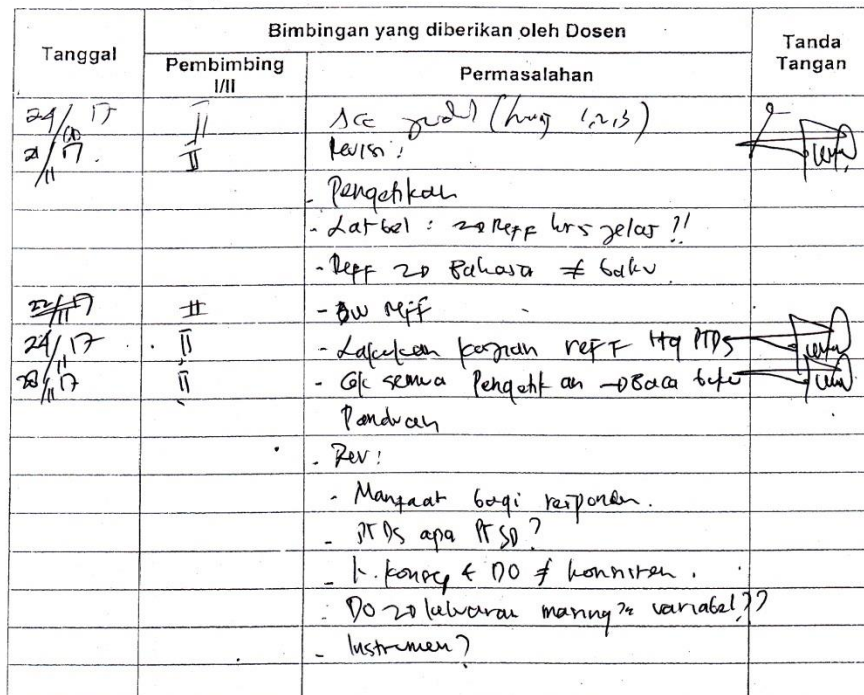 Tanggal
Bimbingan yang diberikan oleh Dosen
Tanda Tangan
Pembimbing I/II
Permasalahan
24/ 17 II Acc judul ( 1,2,3)
21/11 17. II Revisi :
- Pengetikan
- Latbel : Reff hrs jelas ?!
- Reff Bahasa ≠ baku
22/11 17 II - Reff
24/11 17 II - Lakukan kajian reff ttg PTDS
28/11 17 II - Cek semua Pengetikan → Baca buku
Panduan
- Rev :
- Manfaat bagi responden.
- PTDS apa PTSD ?
- K. konsep & DO ≠ konsisten.
- DO masing² variabel ??
- Instrumen ?